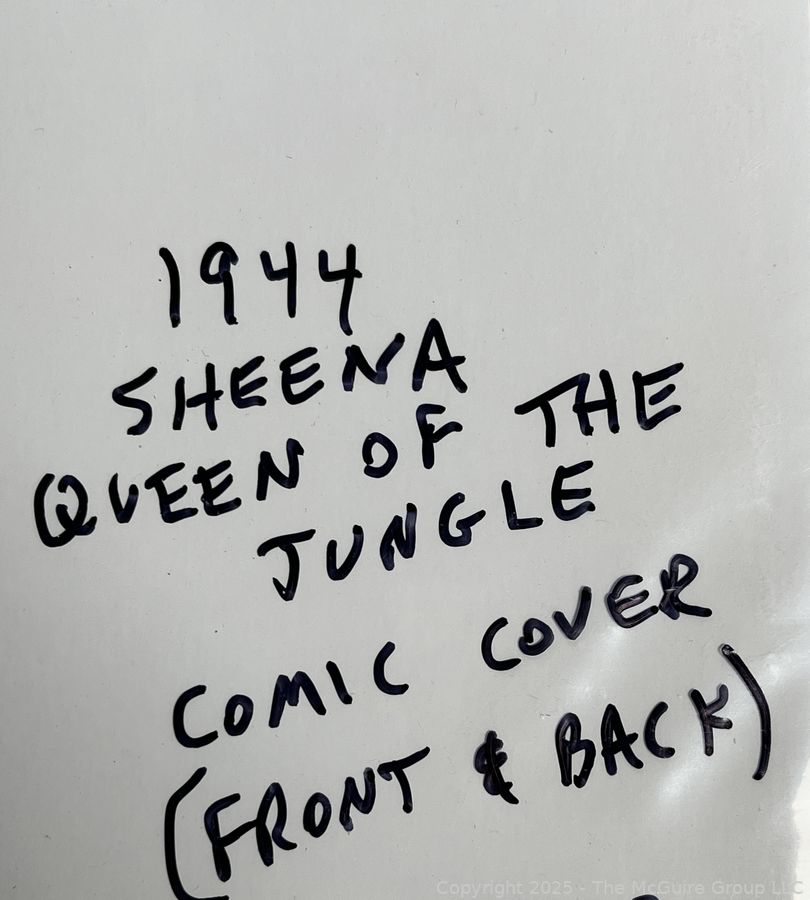 1944
SHEENA
QUEEN OF THE
JUNGLE
COMIC COVER
(FRONT & BACK)
Copyright 2025 - The McGuire Group LLC